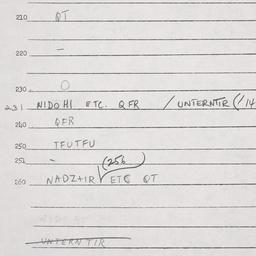 210 QT
220 -
230 O
231 NIDOHI ETC. QFR / UNTERNTIR (1/14
240 QFR
250 TFUTFU
(256)
251 -
260 NADZ+IR ETC QT
UNTERNTIR